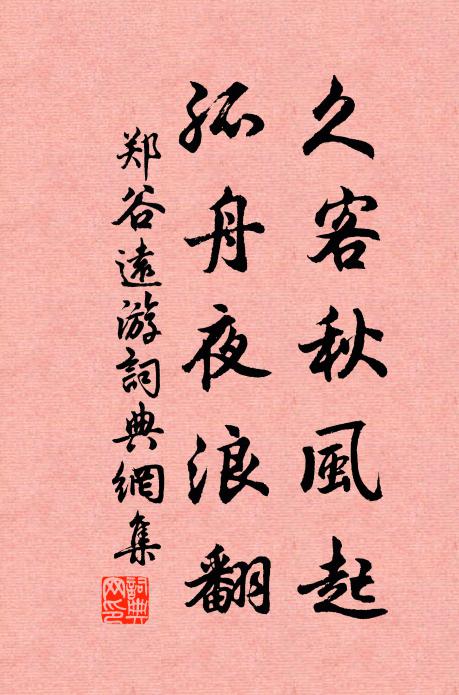 久客秋風起
孤舟夜浪翻
郑谷遠游詞典網集
詞典網印